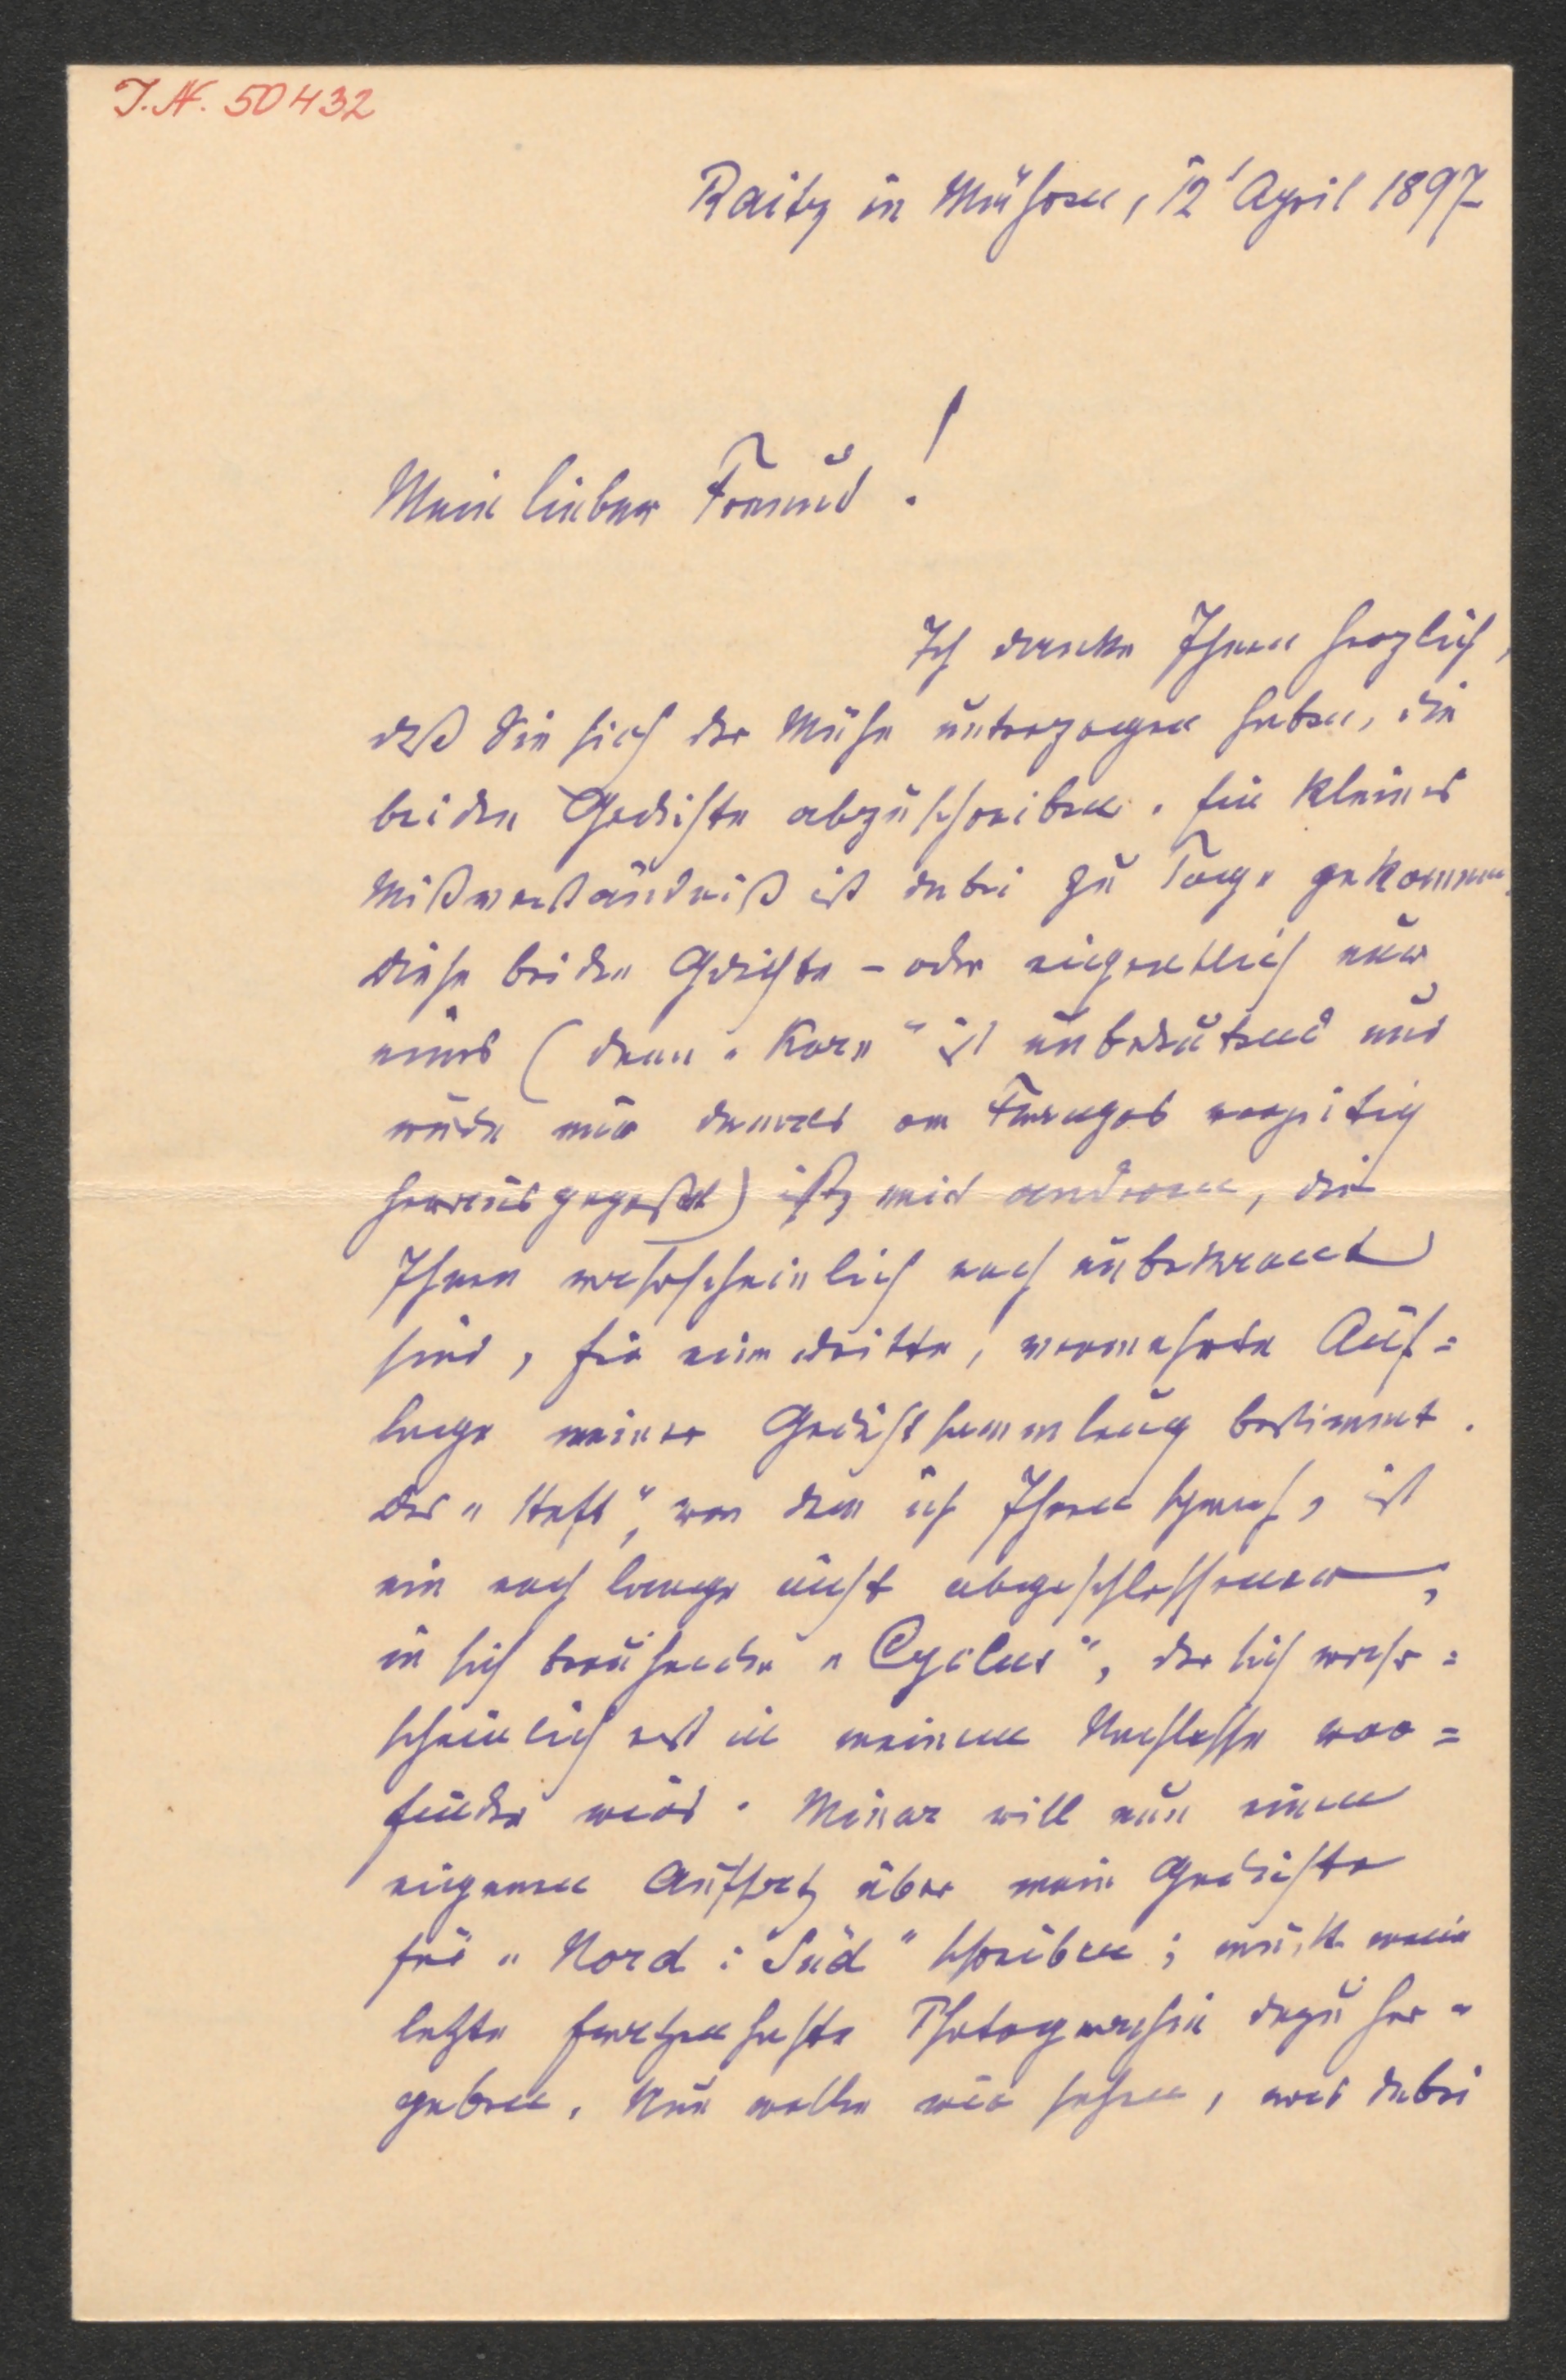 J.N. 50432
Raitz in Mähren, 12' April 1897
Mein lieber Freund!
Ich danke Ihnen herzlich,
daß Sie sich der Mühe unterzogen haben, die
beiden Gedichte abzuschreiben. Ein kleines
Mißverständniß ist dabei zu Tage gekommen.
Diese beiden Gedichte – oder eigentlich nur
eines (denn „Korn" ist unbedeutend und
wurde mir damals vorzeitig
herausgepreßt) ist, mit anderen, die
Ihnen wahrscheinlich noch unbekannt
sind, für eine dritte, vermehrte Auf=
lage meiner Gedichtsammlung bestimmt.
Das „Heft", von dem ich Ihnen sprach, ist
ein noch lange nicht abgeschlossener,
in sich beruhender „Cyclus", der sich wahr=
scheinlich erst in meinem Nachlasse vor=
finden wird. Minor will nun einen
eigenen Aufsatz über meine Gedichte
für „Nord u. Süd" schreiben; mußte meine
letzte Photographie dazu her=
geben. Nun wollen wir sehen, was dabei